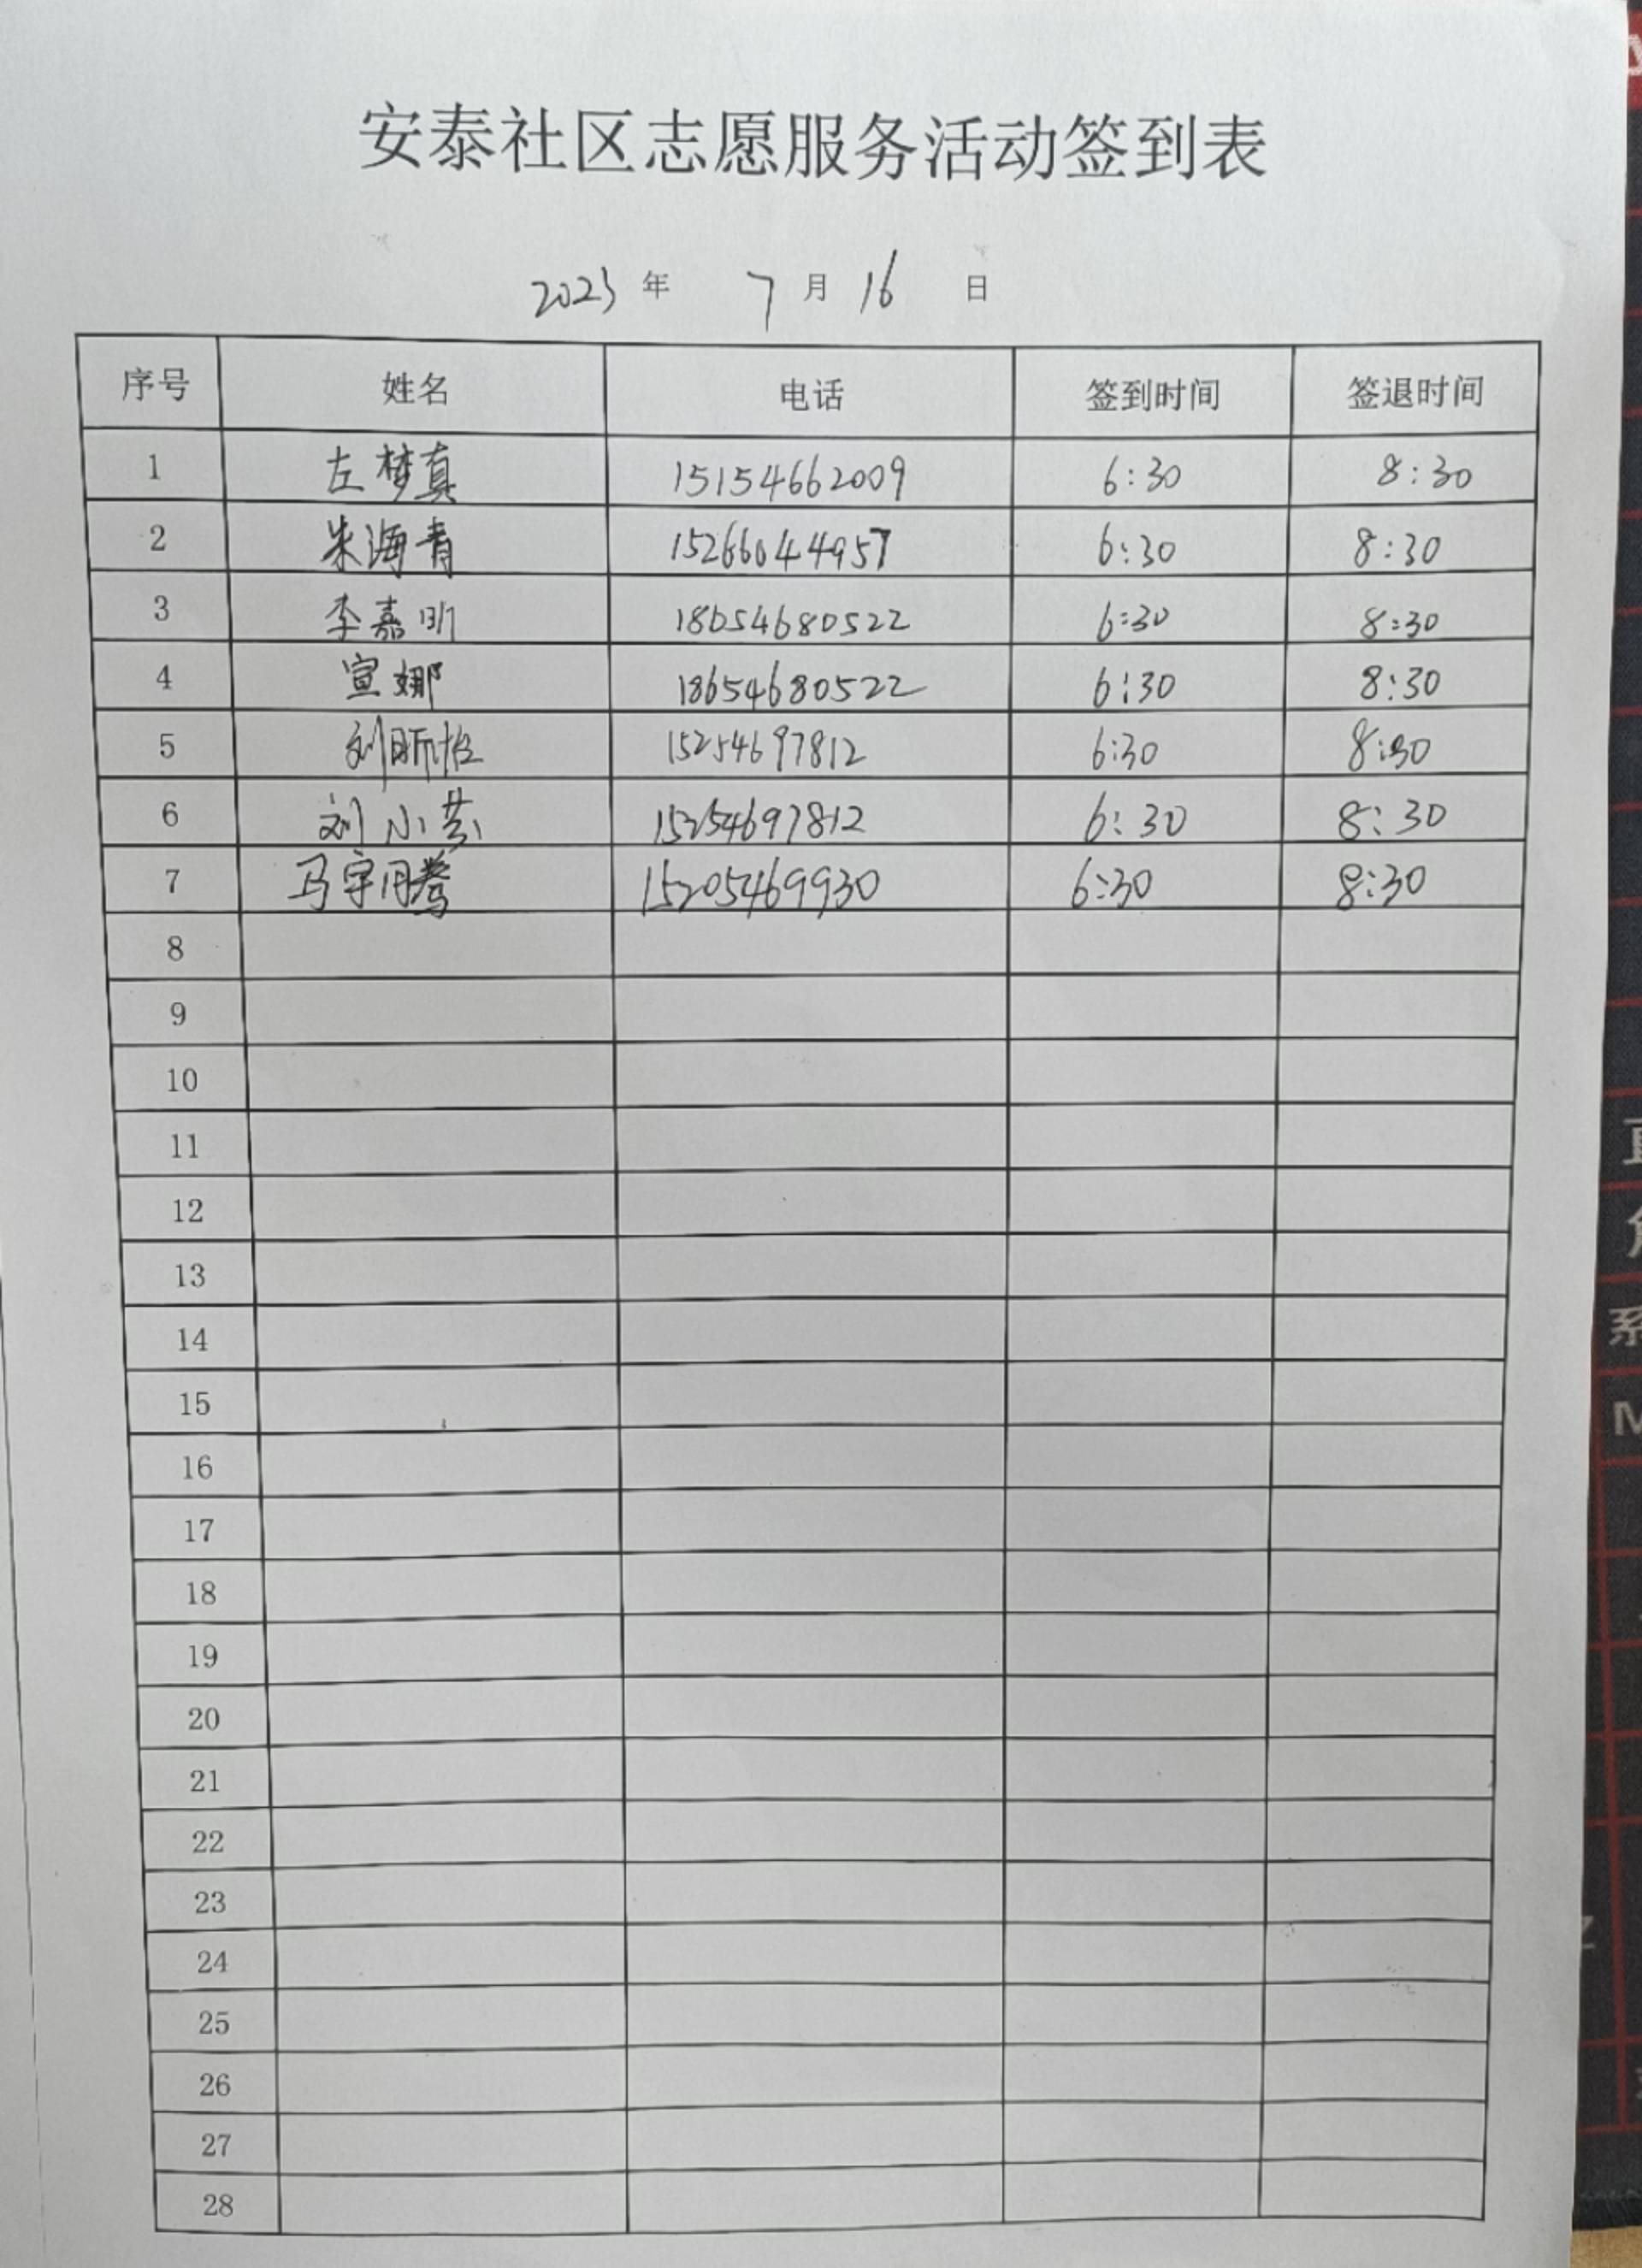 安泰社区志愿服务活动签到表
2023 年 7 月 16 日
序号 姓名 电话 签到时间 签退时间
1 左梦真 15154662009 6:30 8:30
2 朱海青 15266044957 6:30 8:30
3 李嘉昕 18654680522 6:30 8:30
4 宣娜 18654680522 6:30 8:30
5 刘昕怡 15254697812 6:30 8:30
6 刘小芸 15254697812 6:30 8:30
7 马宇腾 15205469930 6:30 8:30
8
9
10
11
12
13
14
15
16
17
18
19
20
21
22
23
24
25
26
27
28